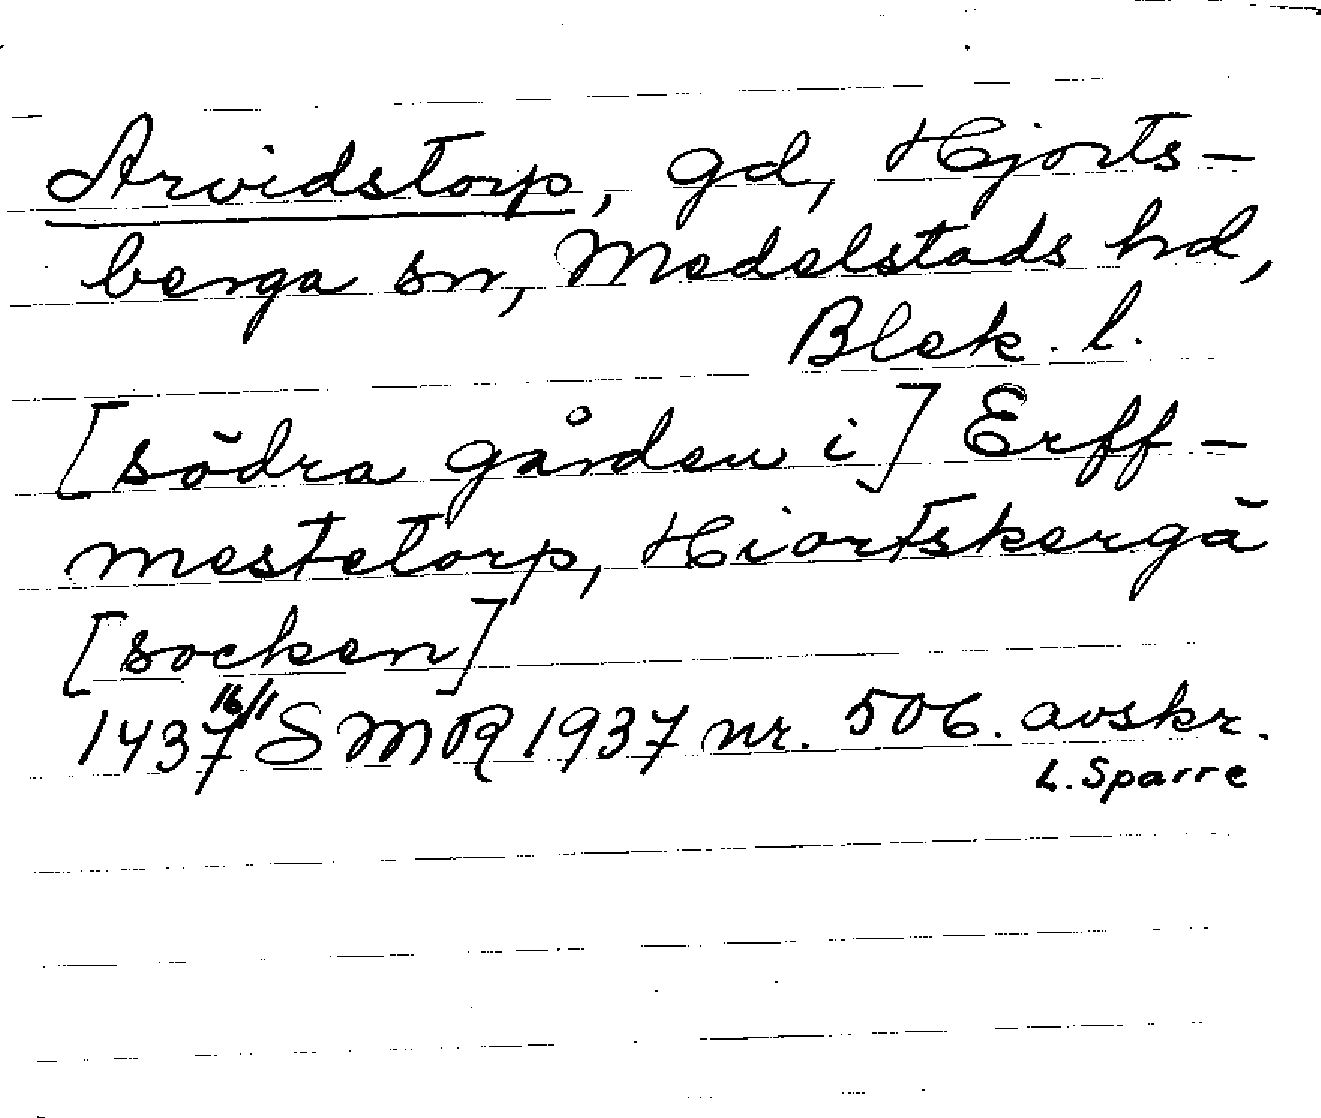 Arvidstorp, gd, Hjorts-
berga sn, Medelstads hd,
Blek. l.
[södra gården i] Erff-
mestetorp, Hiortskergä
[socken]
1437 16/1 SMR 1937 nr. 506. avskr.
L. Sparre